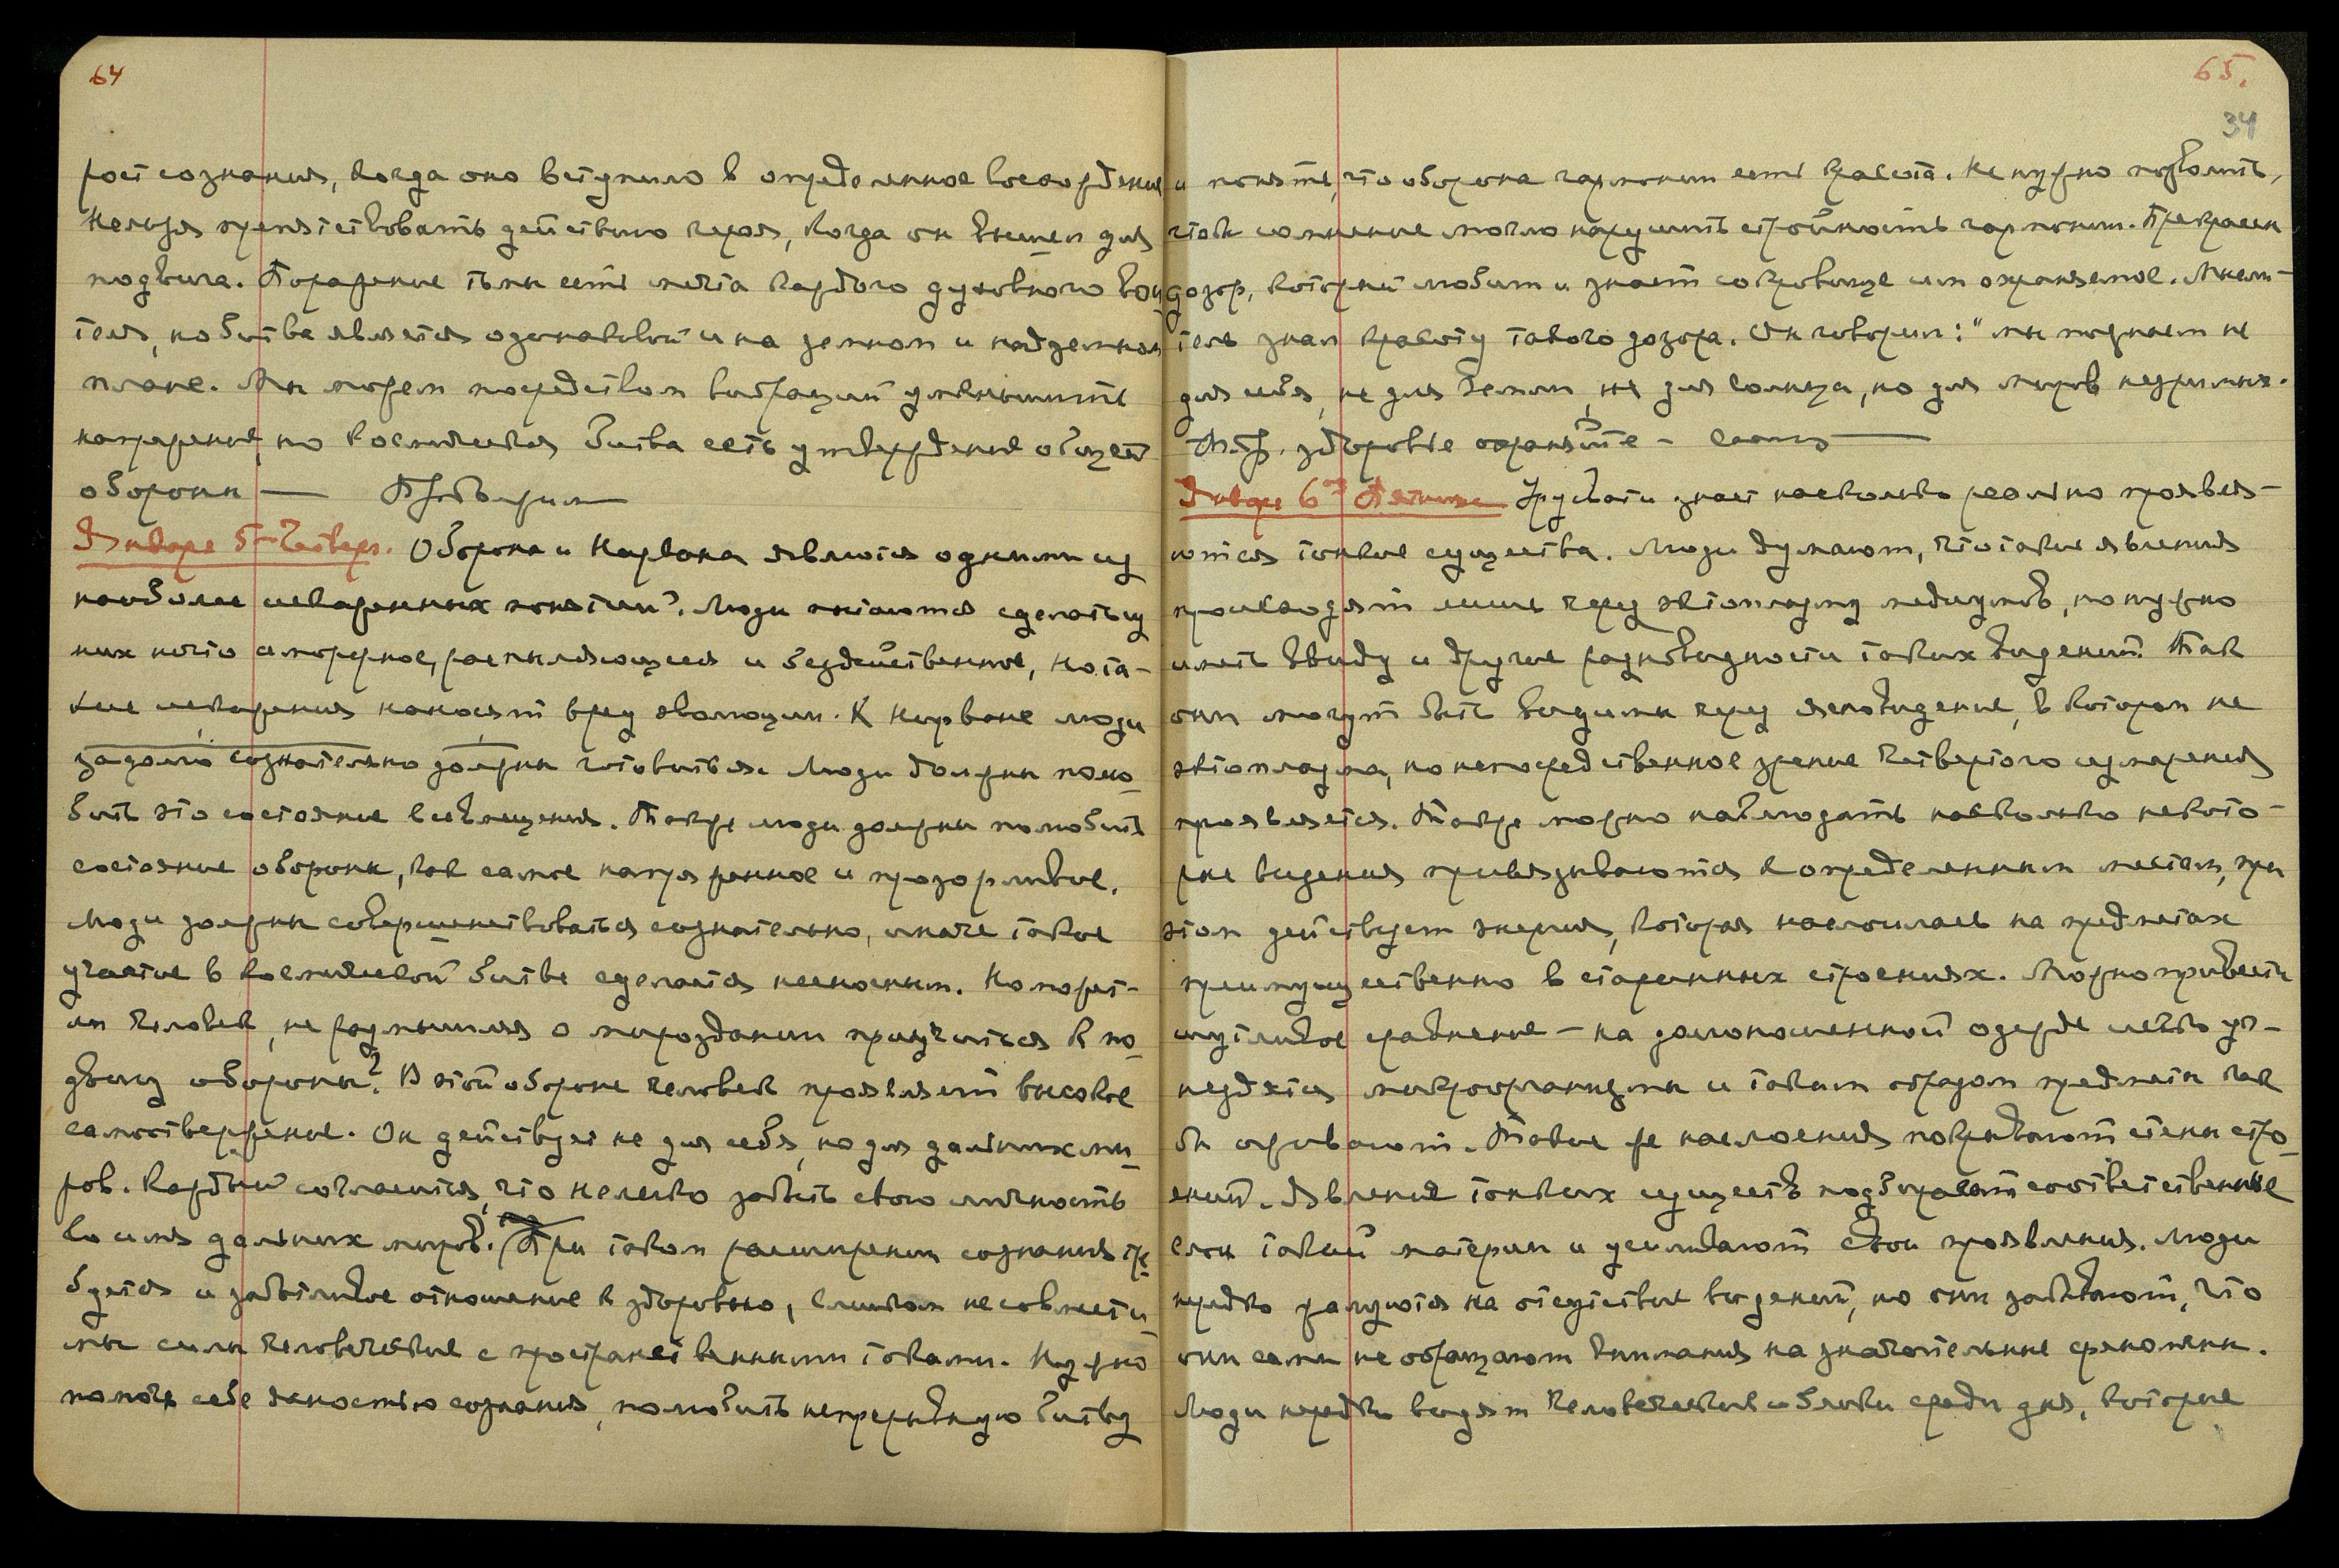 64
рост сознания, когда оно вступило в определенное восхождение
Нельзя препятствовать действию героя, когда он вышел для
подвига. Поражение тьмы есть мечта каждого духовного вои-
теля, но битва является одинаковой и на земном и надземном
плане. Мы можем посредством вибраций уменьшить
напряжение, но космическая битва есть утверждение общей
обороны —
Января 5-Четверг. Оборона и Нирвана являются одними из
наиболее искаженных понятий. Люди пытаются сделать из
них нечто инертное, расслабляющее и бездейственное, но та-
кие искажения наносят вред эволюции. К Нирване люди
задолго сознательно должны готовиться. Люди должны полю-
бить это состояние восхищения. Также люди должны полюбить
состояние обороны, как самое напряженное и прозорливое.
Люди должны совершенствоваться сознательно, иначе такое
участие в космической битве сделается несносным. Но может
ли человек, не размышляя о мироздании приучиться к по-
двигу обороны? В этой обороне человек проявляет высокое
самоотвержение. Он действует не для себя, но для дальних ми-
ров. Каждый согласится, что нелегко забыть свою личность
во имя дальних миров. При таком расширении сознания тре-
буется и заботливое отношение к здоровью, слишком несовмести-
мы силы человеческие с пространственными токами. Нужно
помочь себе ясностью сознания, полюбить непрерывную битву
65.
34
и понять, что оборона гармонии есть красота. Не нужно позволить,
чтобы сомнение могло нарушить стройность гармонии. Прекрасен
дозор, который любит и знает сокровище им охраняемое. Мысли-
тель знал красоту такого дозора. Он говорил: "мы познаем не
для себя, не для Земли, не для Солнца, но для миров незримых.
здоровье охраняйте —
Января 6-го Пятница Урусвати знает насколько реально проявля-
ются тонкие существа. Люди думают, что такие явления
происходят лишь через эктоплазму медиумов, но нужно
иметь ввиду и другие разновидности таких видений. Так
они могут быть видимы через ясновидение, в котором не
эктоплазма, но непосредственное зрение четвертого измерения
проявляется. Также можно наблюдать насколько некото-
рые видения привязываются к определенным местам, при
этом действует энергия, которая наслоилась на предметах
преимущественно в старинных строениях. Можно привести
шутливое сравнение — на долгоношенной одежде легко уг-
нездятся микроорганизмы и таким образом предметы как
бы оживают. Такие же наслоения покрывают стены стро-
ений. Явления тонких существ подбирают соответственные
слои такой материи и усиливают свои проявления. Люди
нередко жалуются на отсутствие видений, но они забывают, что
они сами не обращают внимания на значительные феномены.
Люди нередко видят человеческие облики среди дня, которые